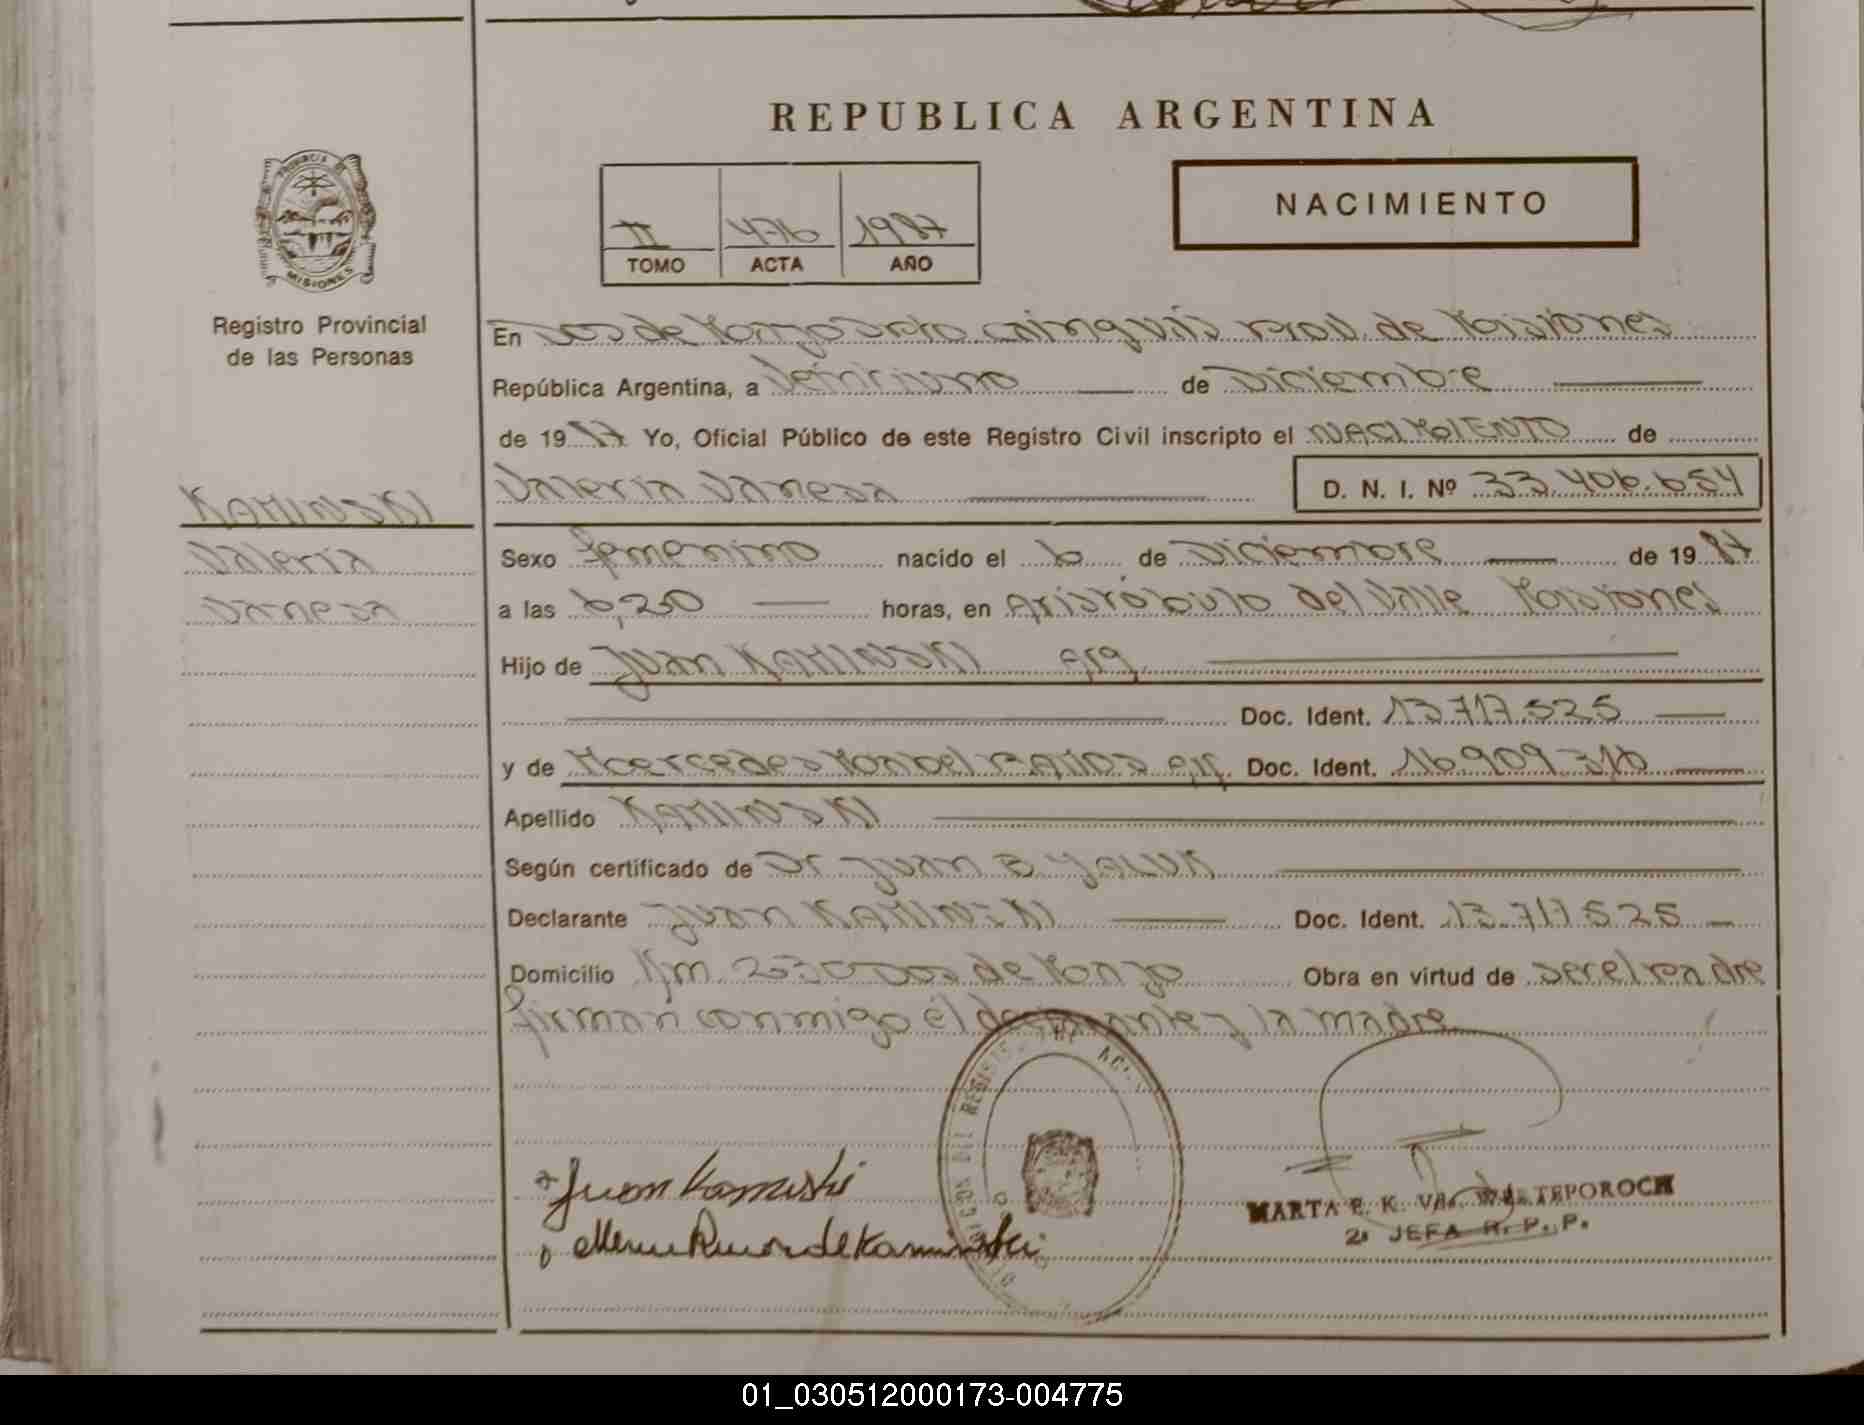 REPUBLICA ARGENTINA
PROVINCIA DE
MISIONES
Registro Provincial
de las Personas
II 476 1987
TOMO ACTA AÑO
NACIMIENTO
En Dos de Mayo Dpto Cainguás Prov. de Misiones
República Argentina, a Veintiuno de Diciembre
de 1987 Yo, Oficial Público de este Registro Civil inscripto el NACIMIENTO de
Valeria Vanesa D. N. I. Nº 33.406.654
KAMINSKI
Valeria
Vanesa
Sexo femenino nacido el 6 de Diciembre de 1987
a las 6,20 horas, en Aristóbulo del Valle Misiones
Hijo de Juan KAMINSKI Arg.
Doc. Ident. 13.717.525
y de Mercedes Doc. Ident. 16.909.316
Apellido KAMINSKI
Según certificado de Dr Juan B YALUK
Declarante Juan KAMINSKI Doc. Ident. 13.717.525
Domicilio Km. 230 Dos de Mayo Obra en virtud de ser el padre
firman conmigo el declarante y la madre
Juan Kaminski
de Kaminski
MARTA E. K. Vda. TEPOROCH
2º JEFA R. P. P.
01_030512000173-004775